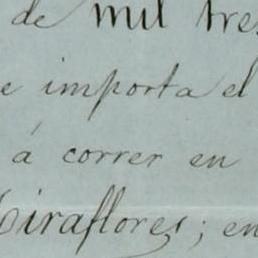 de mil tres
e importa el
á correr en
Miraflores; en